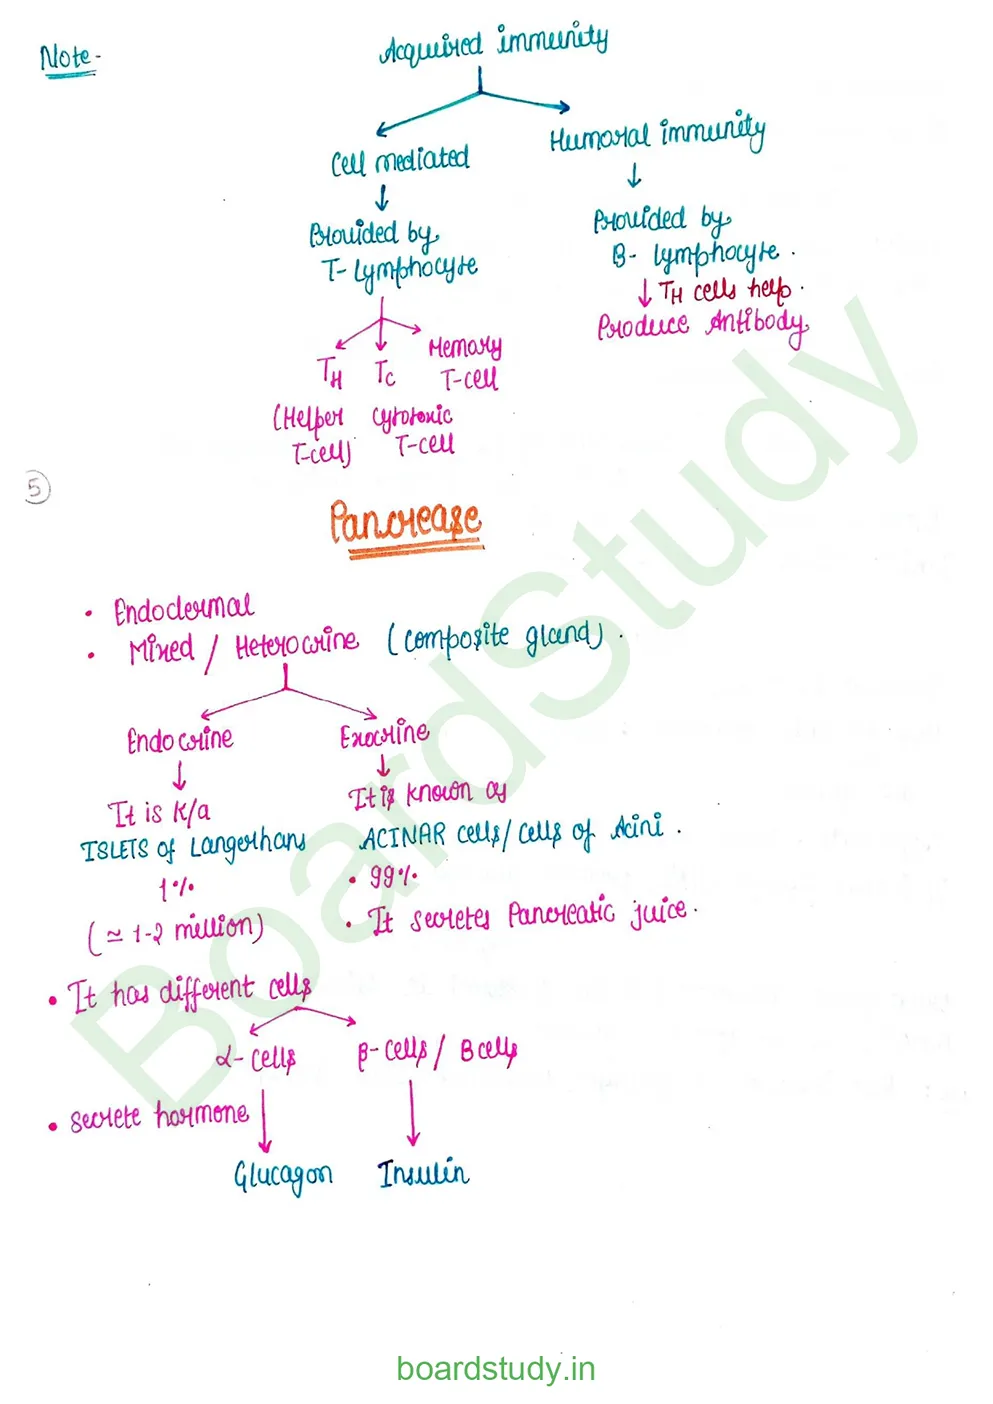 Note-
Acquired immunity
Cell mediated
Humoral immunity
Provided by
T-lymphocyte
Provided by
B- lymphocyte.
TH cells help.
Produce Antibody
TH
TC
Memory
T-cell
(Helper
T-cell)
Cytotoxic
T-cell
5
Pancrease
• Endodermal
• Mixed / Heterocrine (composite gland).
Endocrine
Exocrine
It is K/a
ISLETS of Langerhans
1%
(≃ 1-2 million)
It is known as
ACINAR cells/cells of Acini.
• 99%
• It secretes Pancreatic juice.
• It has different cells
α- cells
β-cells / B cells
• secrete hormone
Glucagon
Insulin
BoardStudy
boardstudy.in